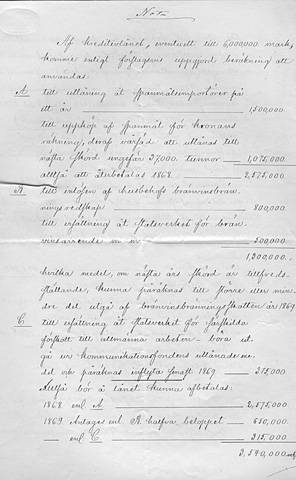 Nota
Af kreditivlånet, eventuelt till 6,000,000 mark,
komme enligt företagen uppgjord beräkning att
användas:
A. till utlåning åt spanmålsimportörer på
ett år 1,500,000.
till uppköp af spanmål för kronans
räkning, deraf värdet att utlånas till
nästa skörd ungefär 37000. tunnor 1,075,000
alltså att återbetalas 1868. 2,575,000
B. till inlösen af husbehofs bränvinsbrän
ningsredskap 800,000
till ersättning åt statsverket för brän
vinsarrende m m 500,000
1,300,000.
hvilka medel, om nästa års skörd är tillfreds
ställande, kunna påräknas till större eller min
dre del utgå af bränvinsbränningsskatten år 1869
C. till ersättning åt statsverket för särskilda
förskott till allmänna arbeten - böra ut
gå ur kommunikationsfondens utlånade me
del och påräknas inflyta senast 1869 215,000
Alltså bör å lånet kunna afbetalas:
1868 enl. A. 2,575,000
1869. Antages enl. B. halfva beloppet 650,000
— enl C. 315,000
3,540,000